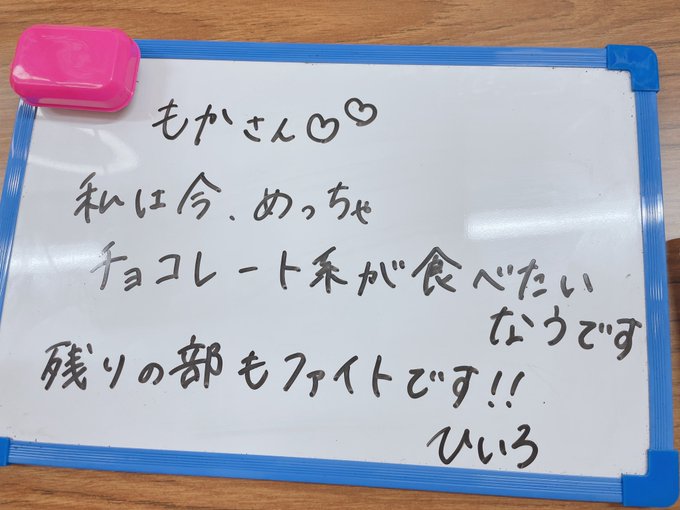 もかさん♡♡
私は今、めっちゃ
チョコレート系が食べたい
なうです
残りの部もファイトです!!
ひいろ